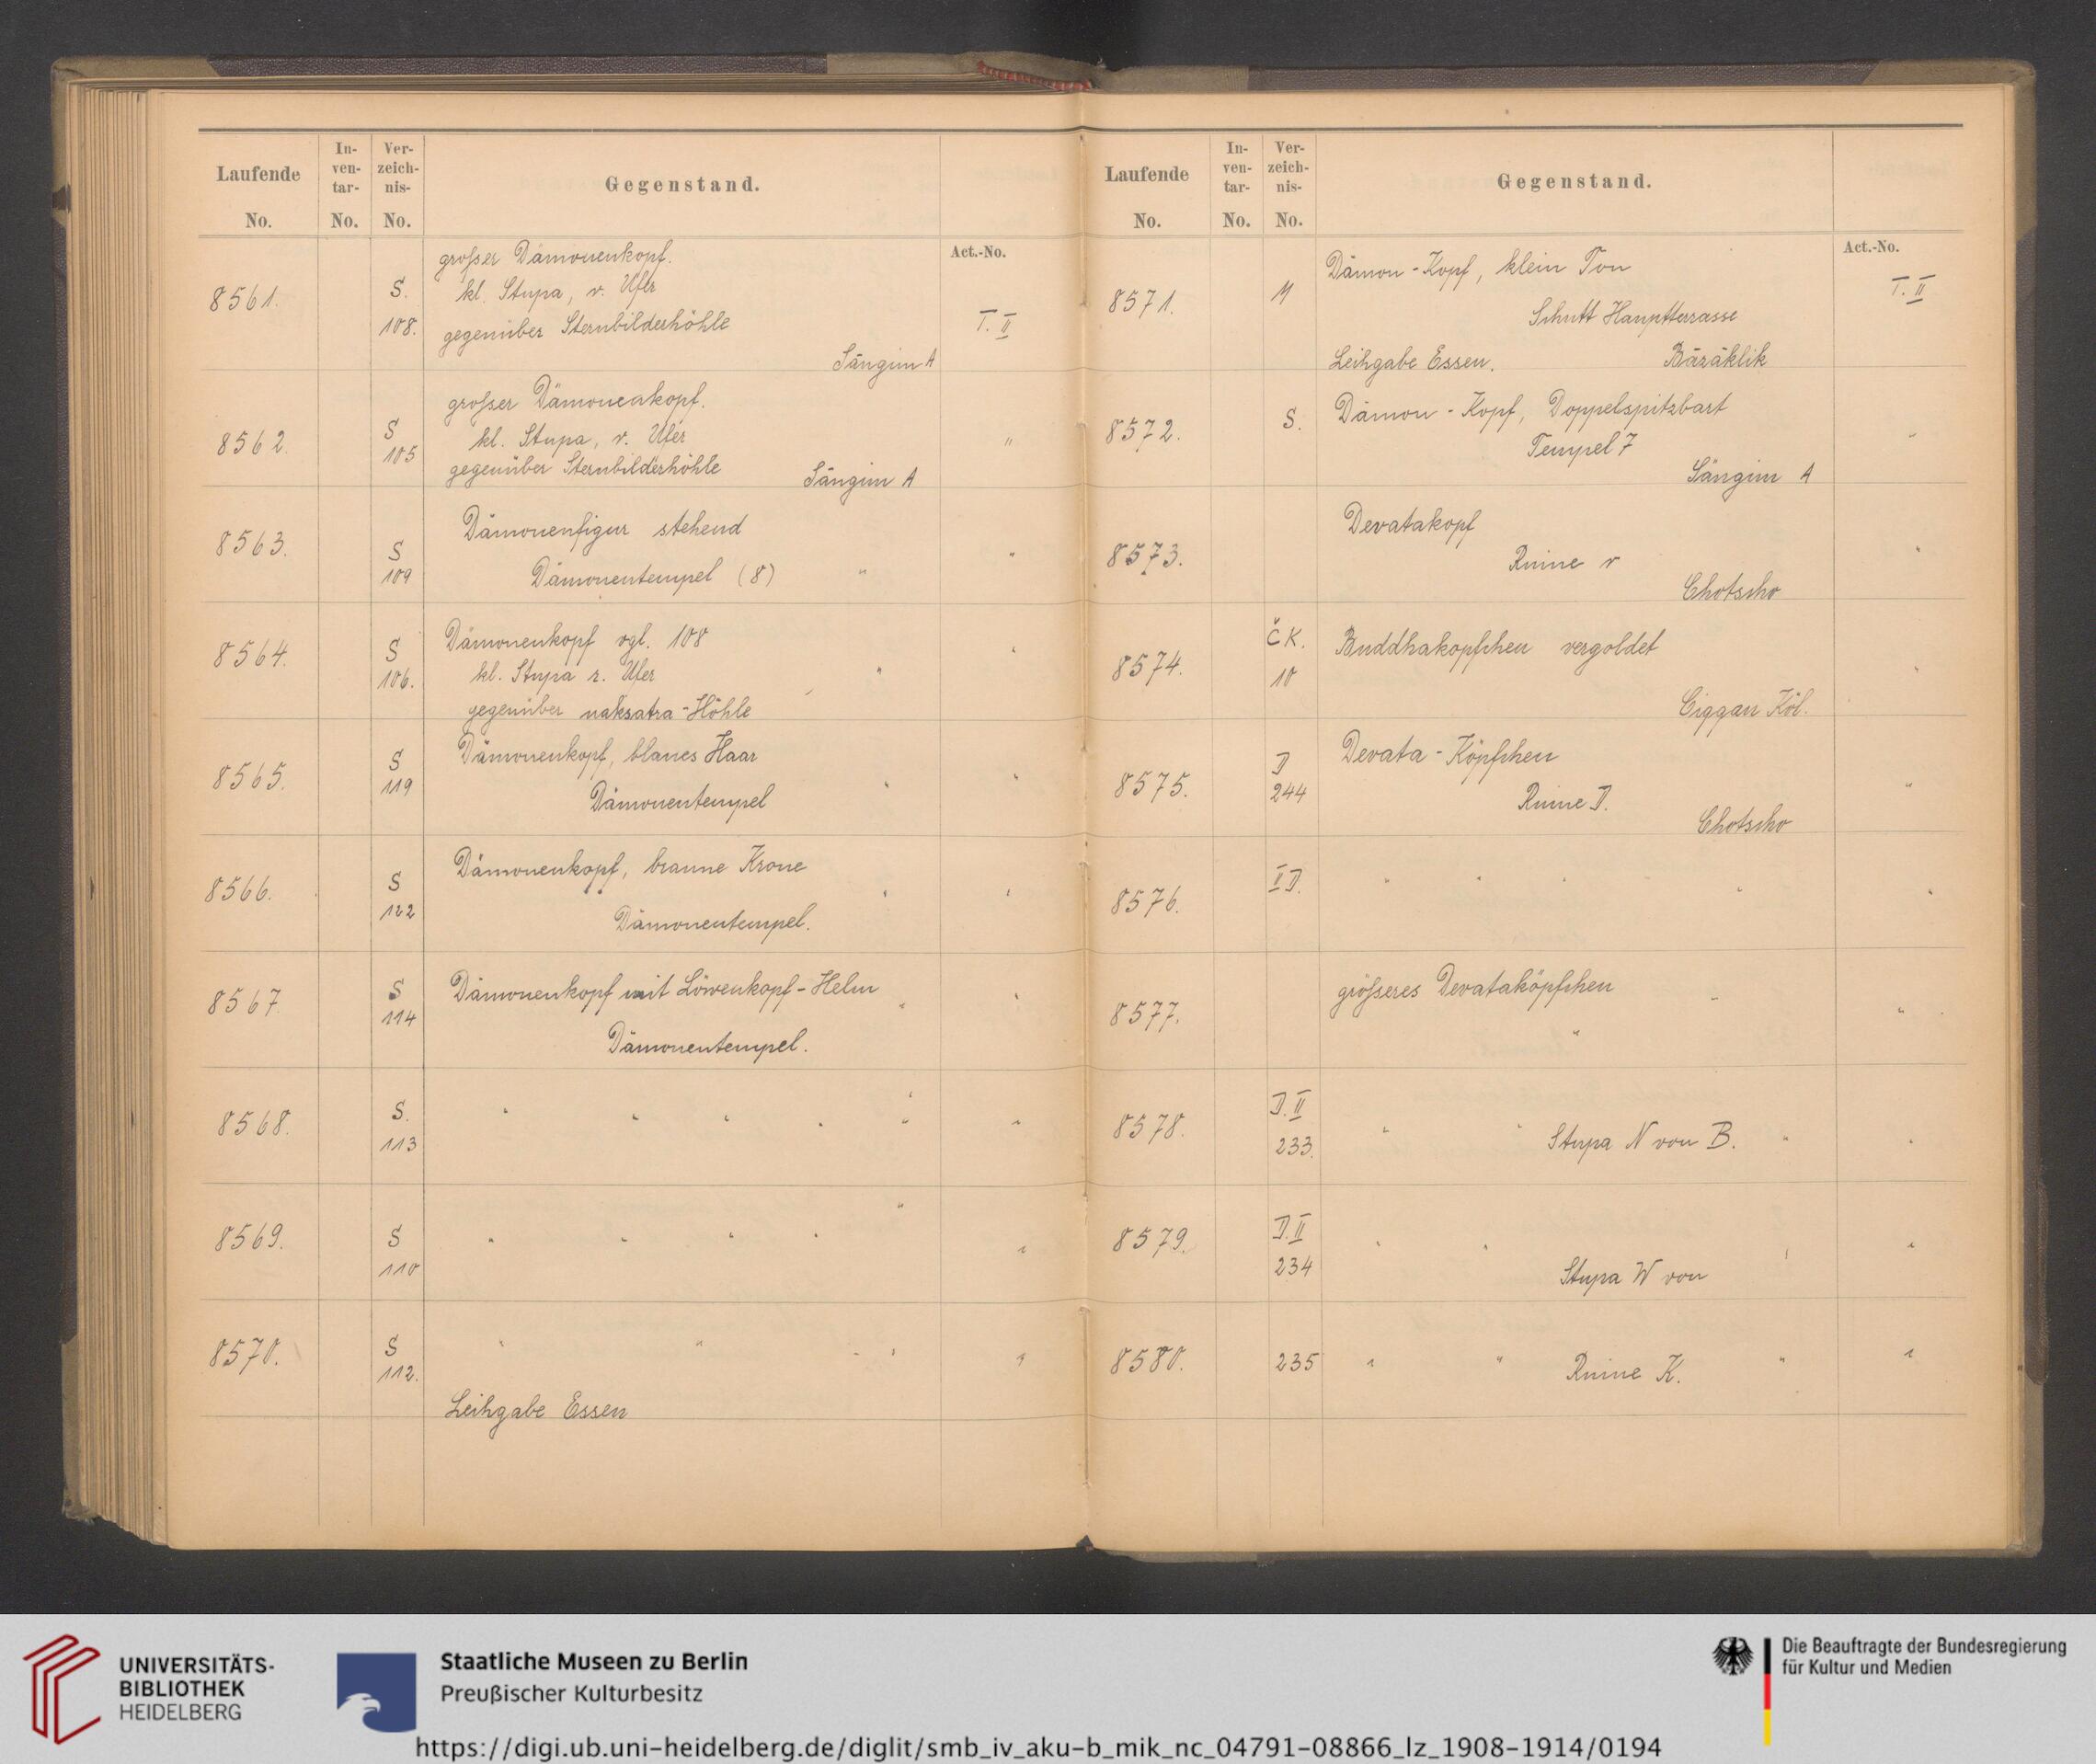 Laufende No.
In-ven-tar- No.
Ver-zeich-nis- No.
Gegenstand.
Act.-No.
8561.
S.
108.
großer Dämonenkopf.
kl. Stupa, r. Ufer
gegenüber Sternbilderhöhle
Sängim A
T. II
8562.
S
105
großer Dämonenkopf.
kl. Stupa, r. Ufer
gegenüber Sternbilderhöhle
Sängim A
"
8563.
S
109
Dämonenfigur stehend
Dämonentempel (8) "
"
8564.
S
106.
Dämonenkopf vgl. 108
kl. Stupa r. Ufer "
gegenüber naksatra-Höhle
"
8565.
S
119
Dämonenkopf, blaues Haar
Dämonentempel "
"
8566.
S
122
Dämonenkopf, braune Krone
Dämonentempel. "
"
8567
S
114
Dämonenkopf mit Löwenkopf-Helm "
Dämonentempel.
"
8568.
S.
113
" " " " "
"
8569.
S
110
" " " " "
"
8570.
S
112.
" " " "
"
Leihgabe Essen
Laufende No.
In-ven-tar- No.
Ver-zeich-nis- No.
Gegenstand.
Act.-No.
8571.
M
Dämon-Kopf, klein Ton
Schutt Hauptterrasse
Leihgabe Essen. Bäzäklik
T. II
8572.
S.
Dämon-Kopf, Doppelspitzbart
Tempel 7
Sängim A
"
8573.
Devatakopf
Ruine r
Chotscho
"
8574.
Č K.
10
Buddhakopfchen vergoldet
Ciggan Köl.
"
8575.
D
244
Devata-Köpfchen
Ruine D.
Chotscho
"
8576.
II D.
" " " " "
"
8577.
größeres Devataköpfchen "
"
"
8578.
D. II
233.
" " Stupa N von B. "
"
8579.
D. II
234
" " "
Stupa W von
"
8580.
235
" " Ruine K. "
"
UNIVERSITÄTS-
BIBLIOTHEK
HEIDELBERG
Staatliche Museen zu Berlin
Preußischer Kulturbesitz
Die Beauftragte der Bundesregierung
für Kultur und Medien
https://digi.ub.uni-heidelberg.de/diglit/smb_iv_aku-b_mik_nc_04791-08866_lz_1908-1914/0194